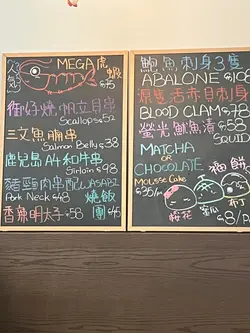 MEGA虎蝦
$75
燒帆立貝串
Scallops $52
三文魚腩串
Salmon Belly $38
鹿兒島A4和牛串
Sirloin $98
豬頸肉串配WASABI
Pork Neck $48
燒飯團 $45
香辣明大子 $58
鮑魚刺身3隻
ABALONE
活赤貝刺身
BLOOD CLAM $78
螢光魷魚漬
$58 SQUID
MATCHA
OR
CHOCOLATE
MOUSSE CAKE
$35/
福餅
櫻花
蜜瓜
布丁
$8/